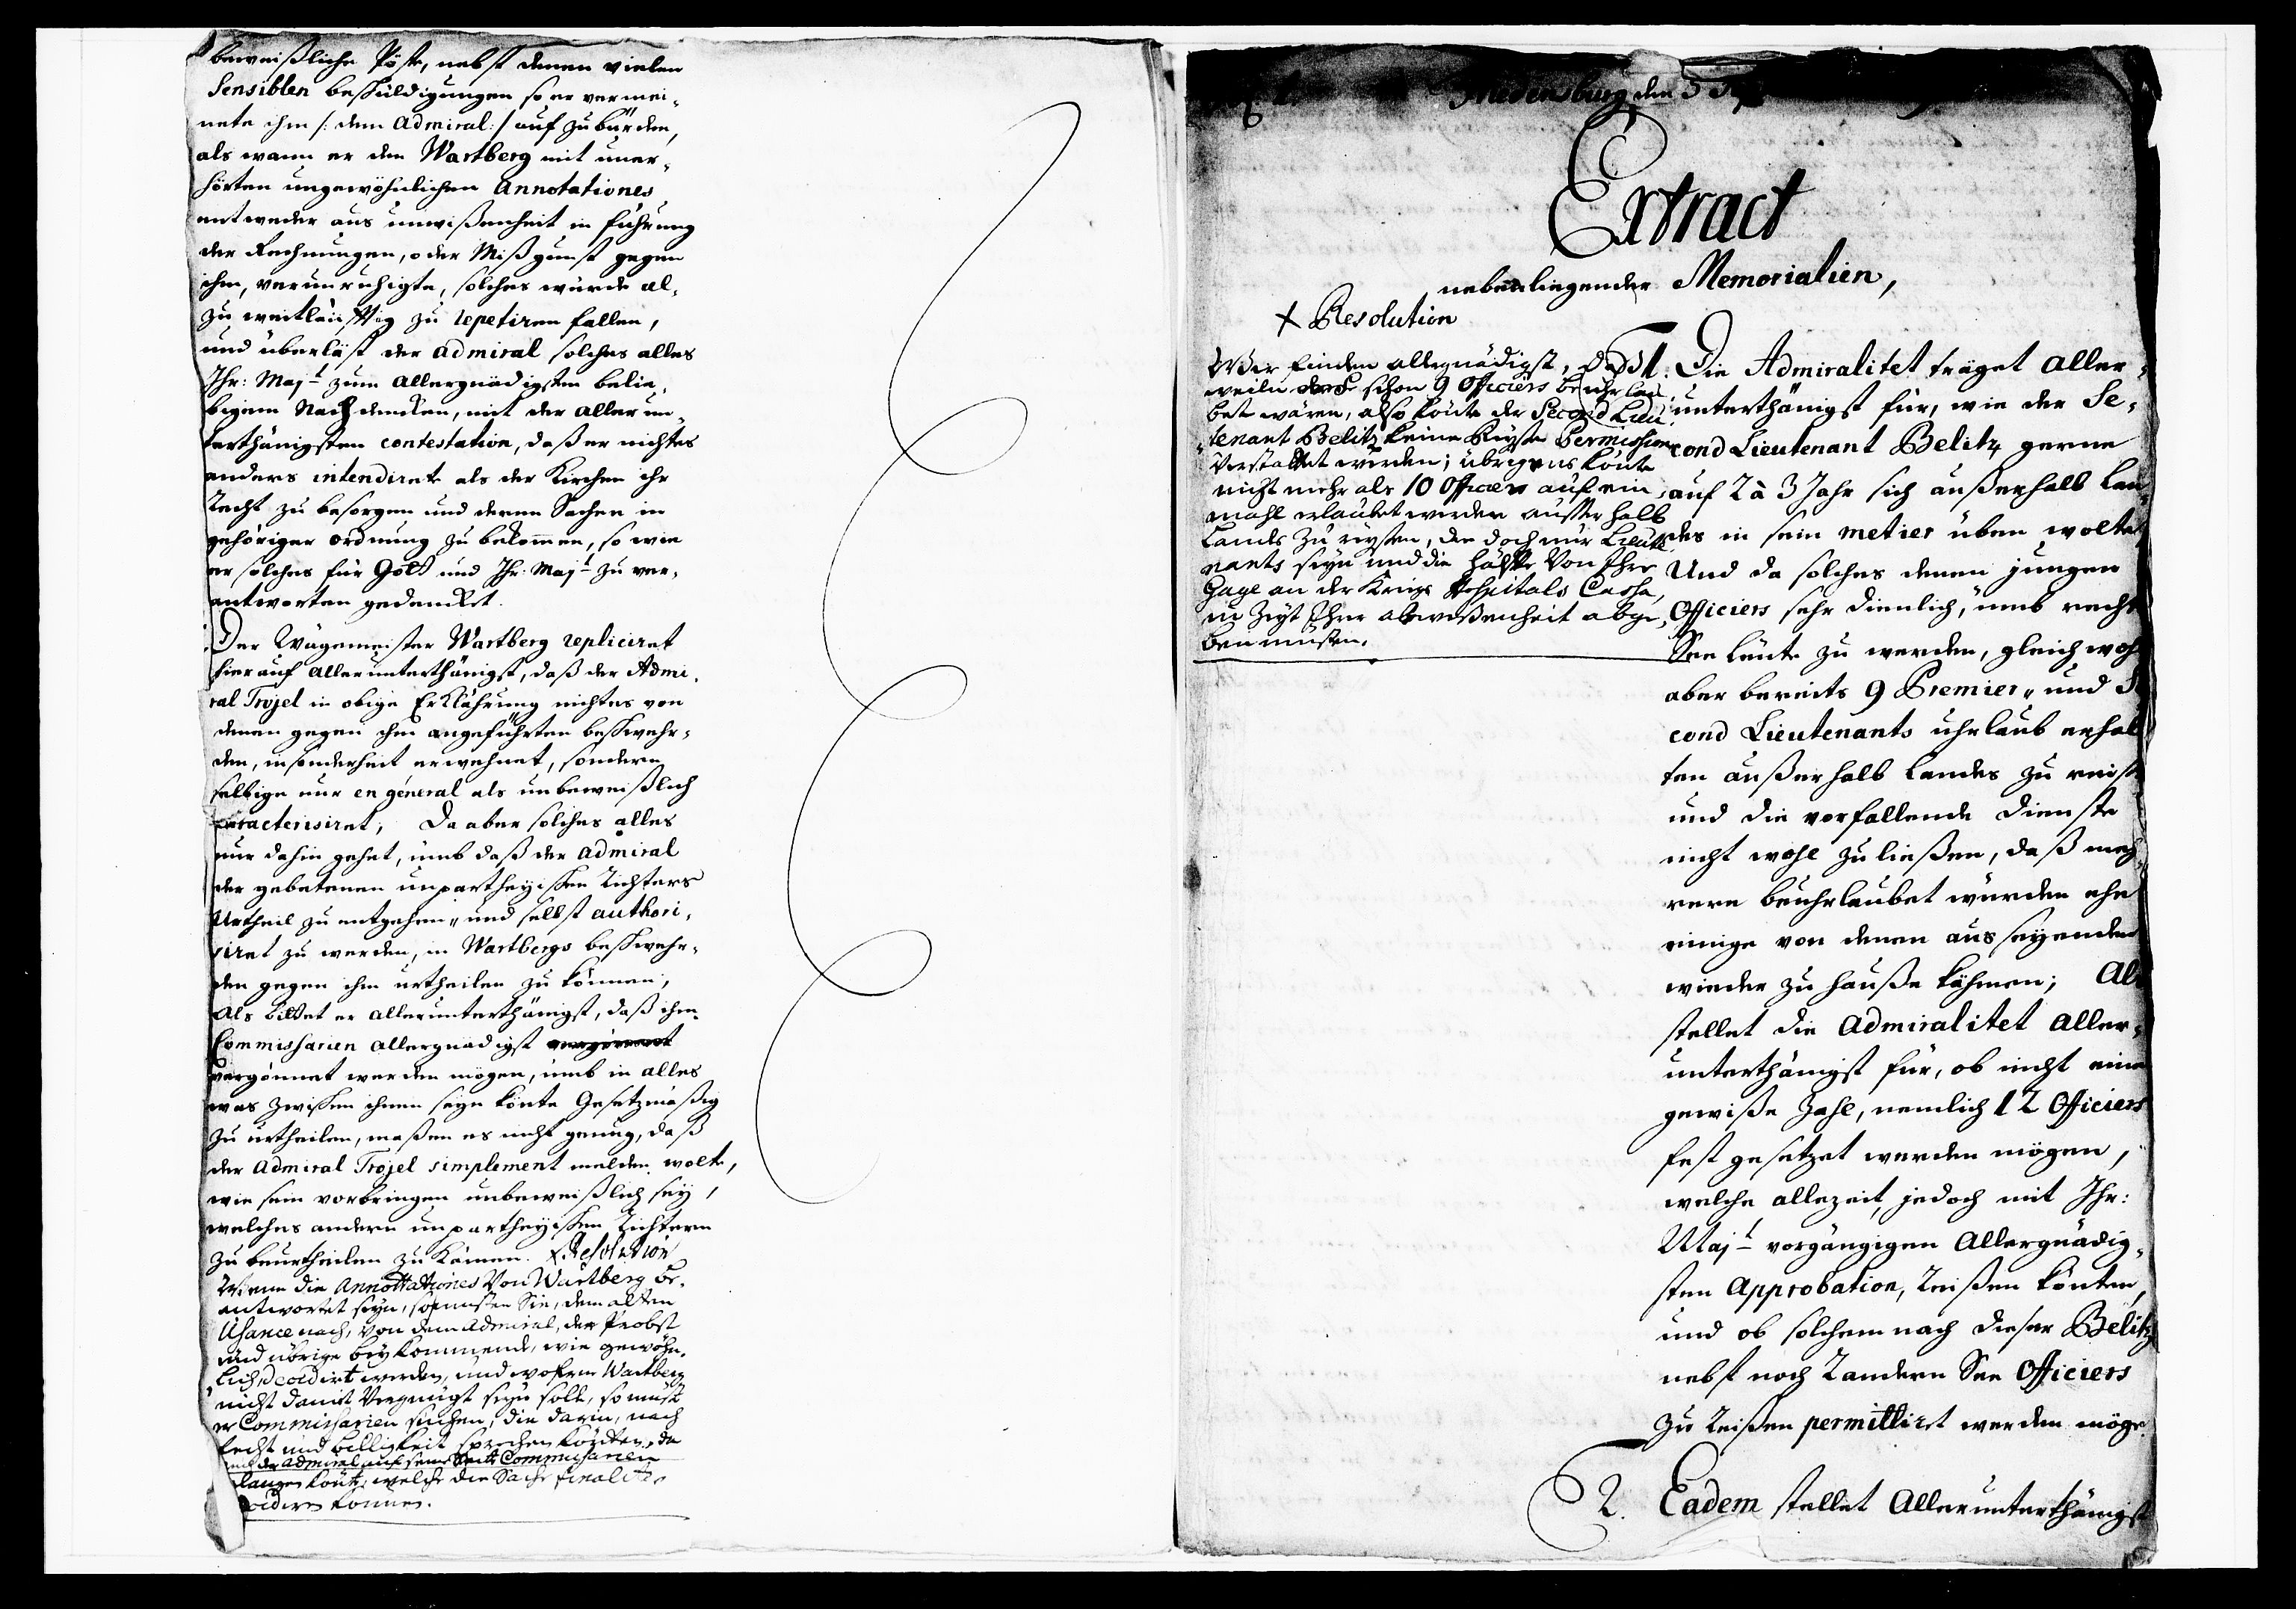 beweißliche Pöste, nebst denen vielen
Sensiblen beschuldigungen so er vermei-
nete ihm /: dem Admiral :/ auf zu bürden,
als wann er den Wartberg mit uner-
hörten ungewöhnlichen Annotationes
entweder aus unwißenheit in führung
der Rechnungen, oder Mißgunst gegen
ihm, verunruhigte, solches würde al-
zu weitläufftig zu repetiren fallen,
und überläst der Admiral solches alles
Ihr: Majt zum Allergnädigsten belie-
bigem Nachdencken, mit der allerun-
terthänigsten contestation, daß er nichtes
anders intendirete als der Kirchen ihr
Recht zu besorgen und deren Sachen in
gehöriger ordnung zu bekommen, so wie
er solches für Gott und Ihr: Majt zu ver-
antworten gedencket.
Der Wägemeister Wartberg repliciret
hierauf Allerunterthänigst, daß der Admi-
ral Trojel in obige Erklährung nichtes von
denen gegen ihm angeführten beschwehr-
den, insonderheit erwehnet, sondern
selbige nur en général als unbeweißlich
caracterisiret; Da aber solches alles
nur dahin gehet, umb daß der Admiral
der gebetenen unpartheyischen Richters
Urtheil zu entgehen, und selbst authori-
siret zu werden, in Wartbergs beschwehr-
den gegen ihm urtheilen zu können;
Als bittet er allerunterthänigst, daß ihm
Commissarien allergnädigst vergönnet
vergönnet werden mögen, umb in alles
was zwischen ihnen seyn könte Gesetzmäßig
zu urtheilen, maßen es nicht genug, daß
der Admiral Trojel simplement melden wolte,
wie sein vorbringen unbeweißlich sey,
welches andern unpartheyischen Richtern
zu beurtheilen zu kämen. x Resolution
Wenn die Annottationes Von Wartberg be-
antwortet seyn, so müsten Sie, dem alten
Usance nach, von dem Admiral, der Probst
und übrige beykommende, wie gewöhn-
lich, decidirt werden, und wofern Wartberg
nicht damit Vergnügt seyn solte, so müst
er Commissarien suchen, die darin, nach
Recht und billigkeit sprechen könten, da
mit der Admiral auf seine Seite Commissarien
langen könte, welche die Sache finaliter
decidiren können.
Friedensburg den 5
Extract
nebenliegender Memorialien,
x Resolution
Wir finden allergnädigst, daß
weiln schon 9 Officiers beuhrlau-
bet wären, also könte der Second Lieu-
tenant Belitz keine Reyse Permission
Verstattet werden; übrigens könte
nicht mehr als 10 Officiers auf ein-
mahl erlaubet werden ausser halb
Landes zu reysen, die doch nur Lieute-
nants seyn und die hälfte Von Ihre
Gage an der Kriegs Hospitals Cassa,
in Zeyt Ihrer abweßenheit abge-
ben müsten.
1. Die Admiralitet träget aller-
unterthänigst für, wie der Se-
cond Lieutenant Belitz gerne
auf 2 à 3 Jahr sich außerhalb Lan-
des in sein metier üben wolte,
Und da solches denen jungen
Officiers sehr dienlich, umb recht
See Leute zu werden, gleich wohl
aber bereits 9 Premier- und Se
cond Lieutenants uhrlaub erhal
ten außerhalb Landes zu reisen
und die vorfallende Dienste
nicht wohl zu ließen, daß meh-
rere beuhrlaubet würden ehe
einige von denen aus seyenden
wieder zu hauße kähmen; Als
stellet die Admiralitet aller-
unterthänigst für, ob nicht eine
gewiße Zahl, nemlich 12 Officiers
fest gesetzet werden mögen,
welche allezeit, jedoch mit Ihr:
Majt vorgängigen Allergnädig-
sten Approbation, Reißen könten,
und ob solchem nach dieser Belitz
nebst noch 2 andern See Officiers
zu Reißen permittiret werden möge
2. Eadem stellet Allerunterthänigst